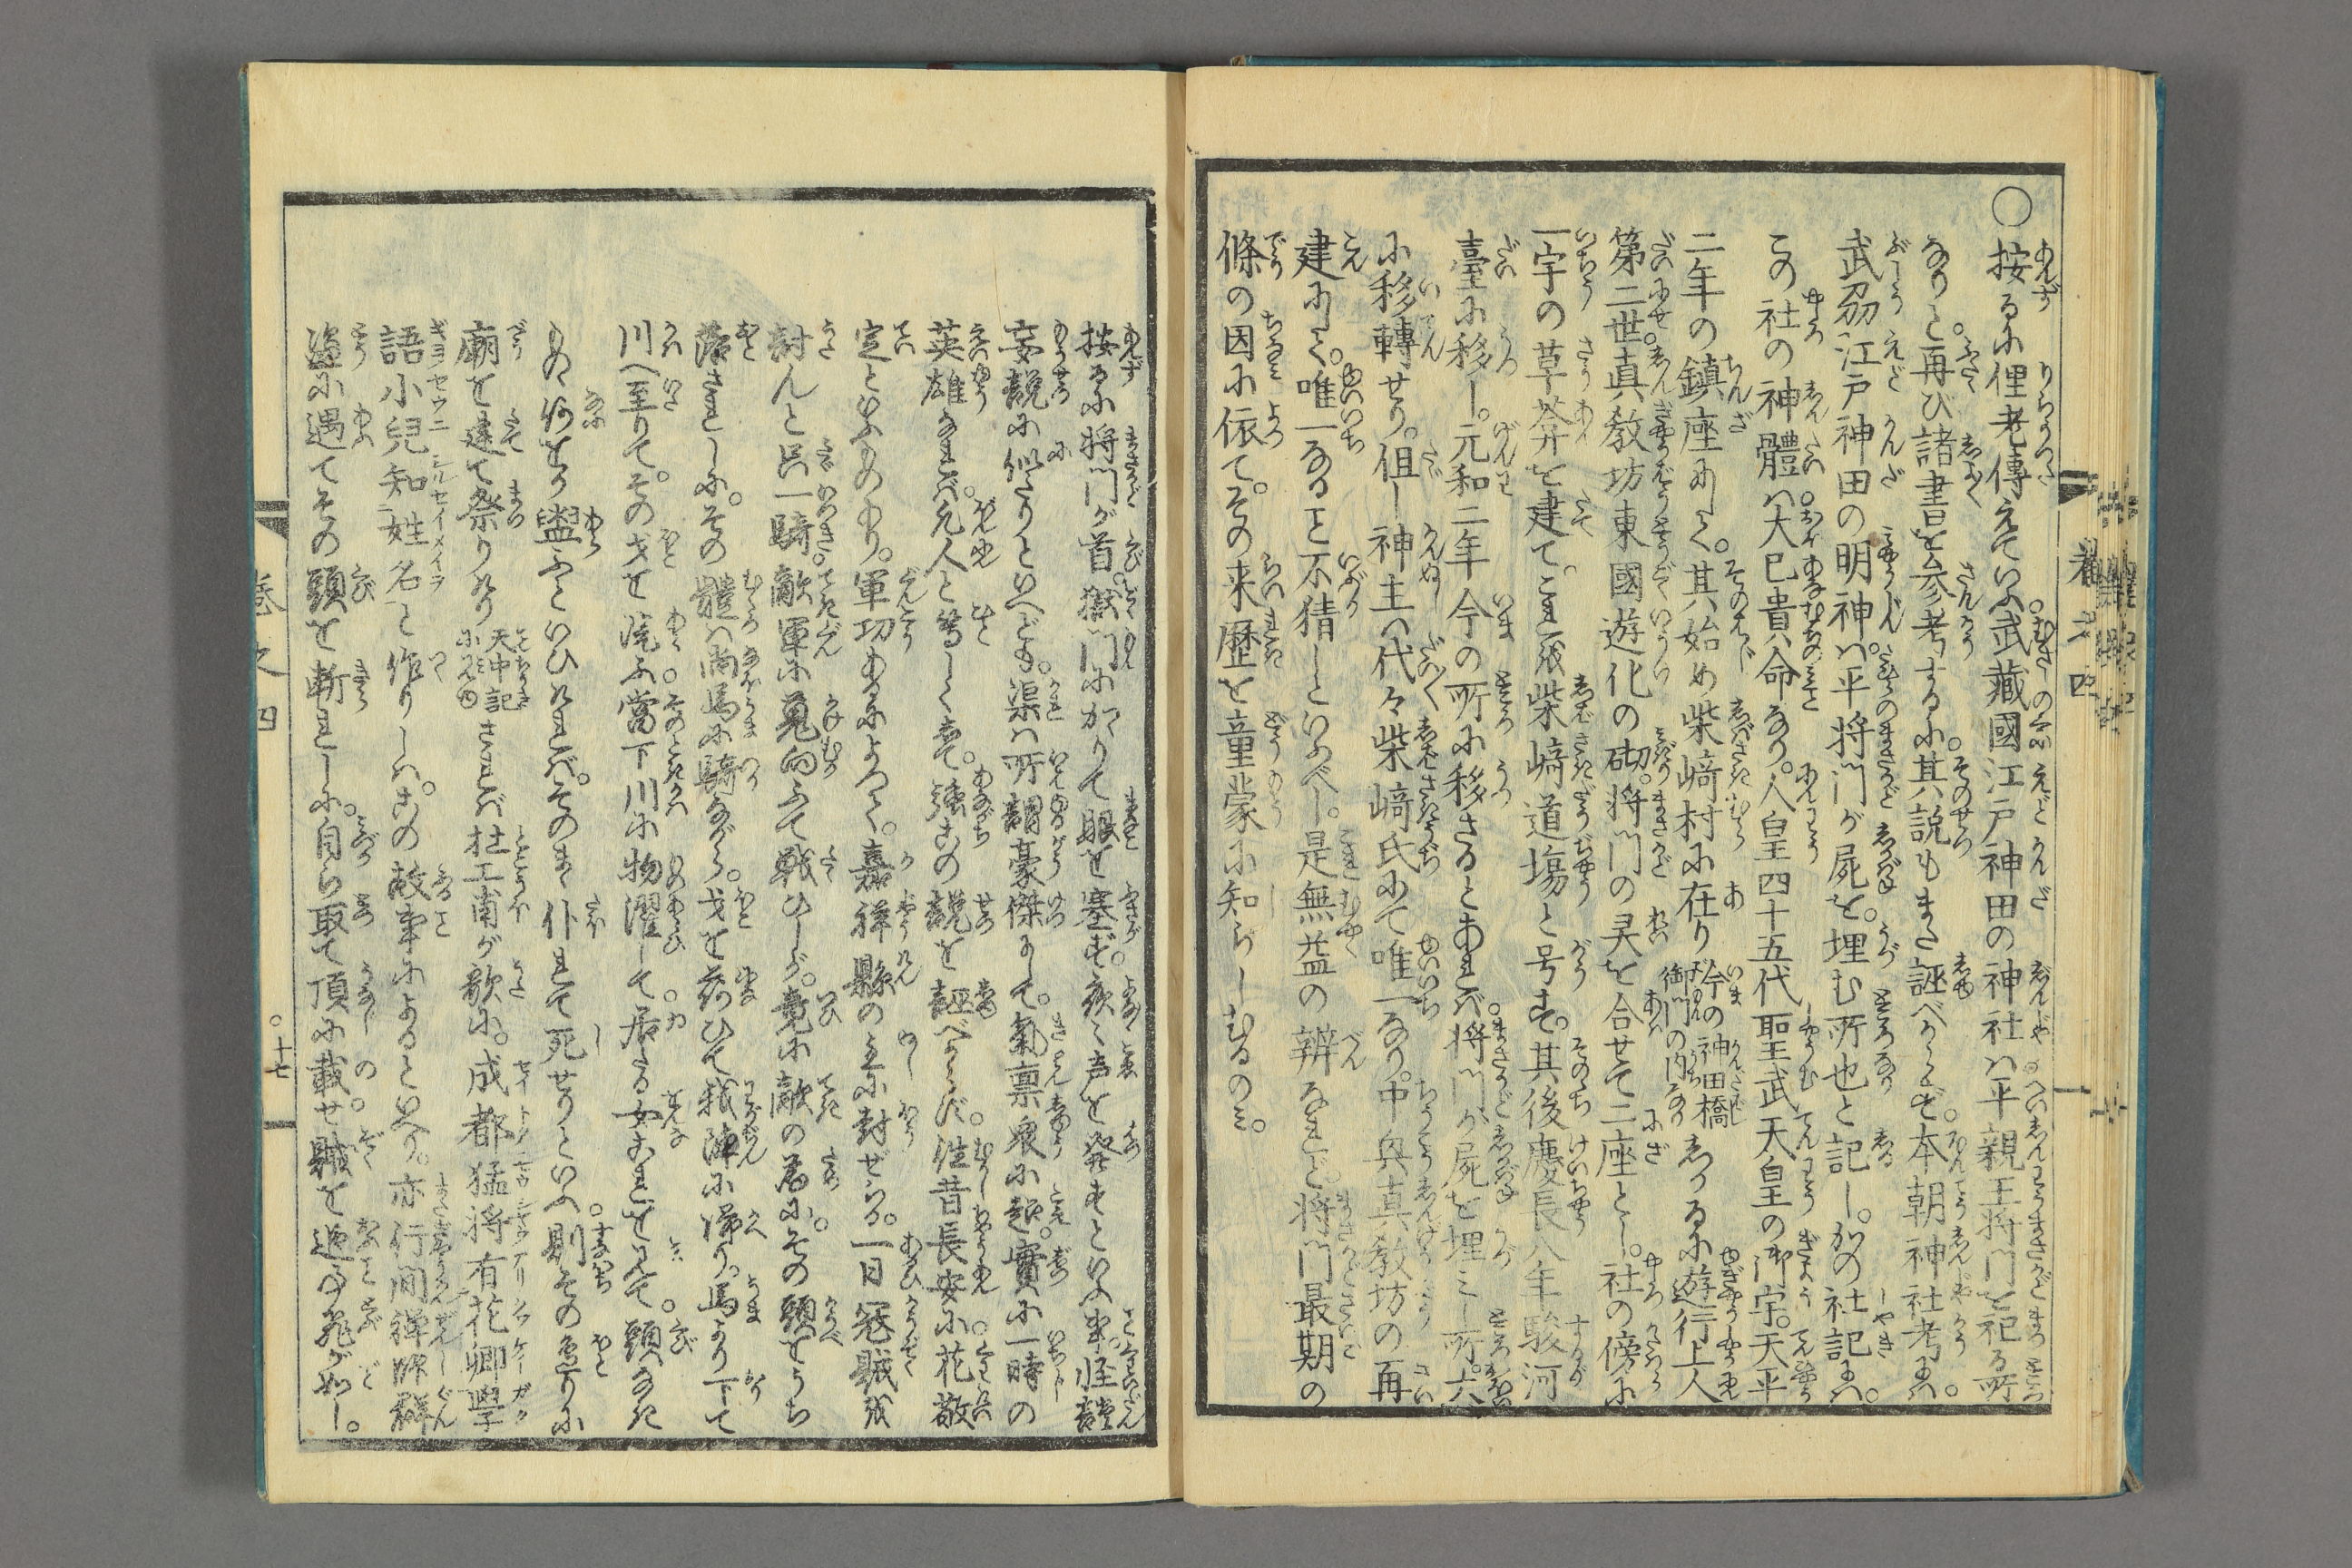 ○按るに俚老傳えていふ武藏國江戸神田の神社ハ平親王将門を祀る所
なりと。再び諸書を参考するに。其説もまた誣べからず。本朝神社考にハ。
武刕江戸神田の明神ハ。平将門が屍を。埋む所也と記し。かの社記にハ。
この社の神體ハ大已貴命なり。人皇四十五代聖武天皇の御宇。天平
二年の鎮座にして。其始め柴﨑村に在り今の神田橋御門の内なりしかるに遊行上人
第二世。真教坊東國遊化の砌。将門の灵を合せて二座とし。社の傍に
一宇の草菴を建て。これを柴﨑道塲と号す。其後慶長八年駿河
臺に移し。元和二年今の所に移さるとあれバ。将門が屍を埋ミし所。六
に移轉せり。但し神主ハ代々柴﨑氏にて唯一なり。中興真教坊の再
建にして。唯一なるを不猜しといふべし。是無益の辨なれど。将門最期の
條の因に依て。その来歴を童蒙に知らしむるのミ。
按るに将門が首。獄門にかゝりて眼を塞ず。夜々声を発すといふ事。怪談
妄説に似たりといへども。渠ハ所謂豪傑にして。氣禀衆に超。實に一時の
英雄なれバ。凡人と等しくして。強この説を誣べからず。往昔長安に花敬
定といふものあり。軍功あるによつて。嘉祥縣の主に封ぜらる。一日冠賊を
討んと只一騎。敵軍に蒐向ふて戦ひしが。竟に敵の為に。その頭をうち
落されしに。その軆ハ尚馬に騎ながら。戈を荷ひて我陣に帰り。馬より下て
川へ至りて。その戈を洗ふ當下川に物濯して。居たる女これを見て。頭へなき
もの何をか盥ふといひけれバ。そのまゝ仆れて死せりといふ。則その邊りに
廟を建て祭りけり天中記に見ゆされバ杜工甫が歌に。成都猛将有花卿學
語小兒知姓名と作りしハ。この故事によるといへり。亦行間禅師群
盗に遇てその頭を斬れしに。自ら取て頂に載せ賊を逐事飛が如し。
巻之四
○十七